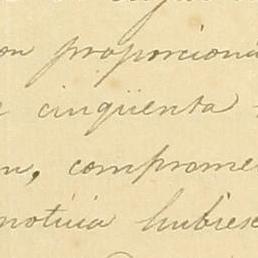 on proporciona
cinqüenta
n, comprome
noticia hubies